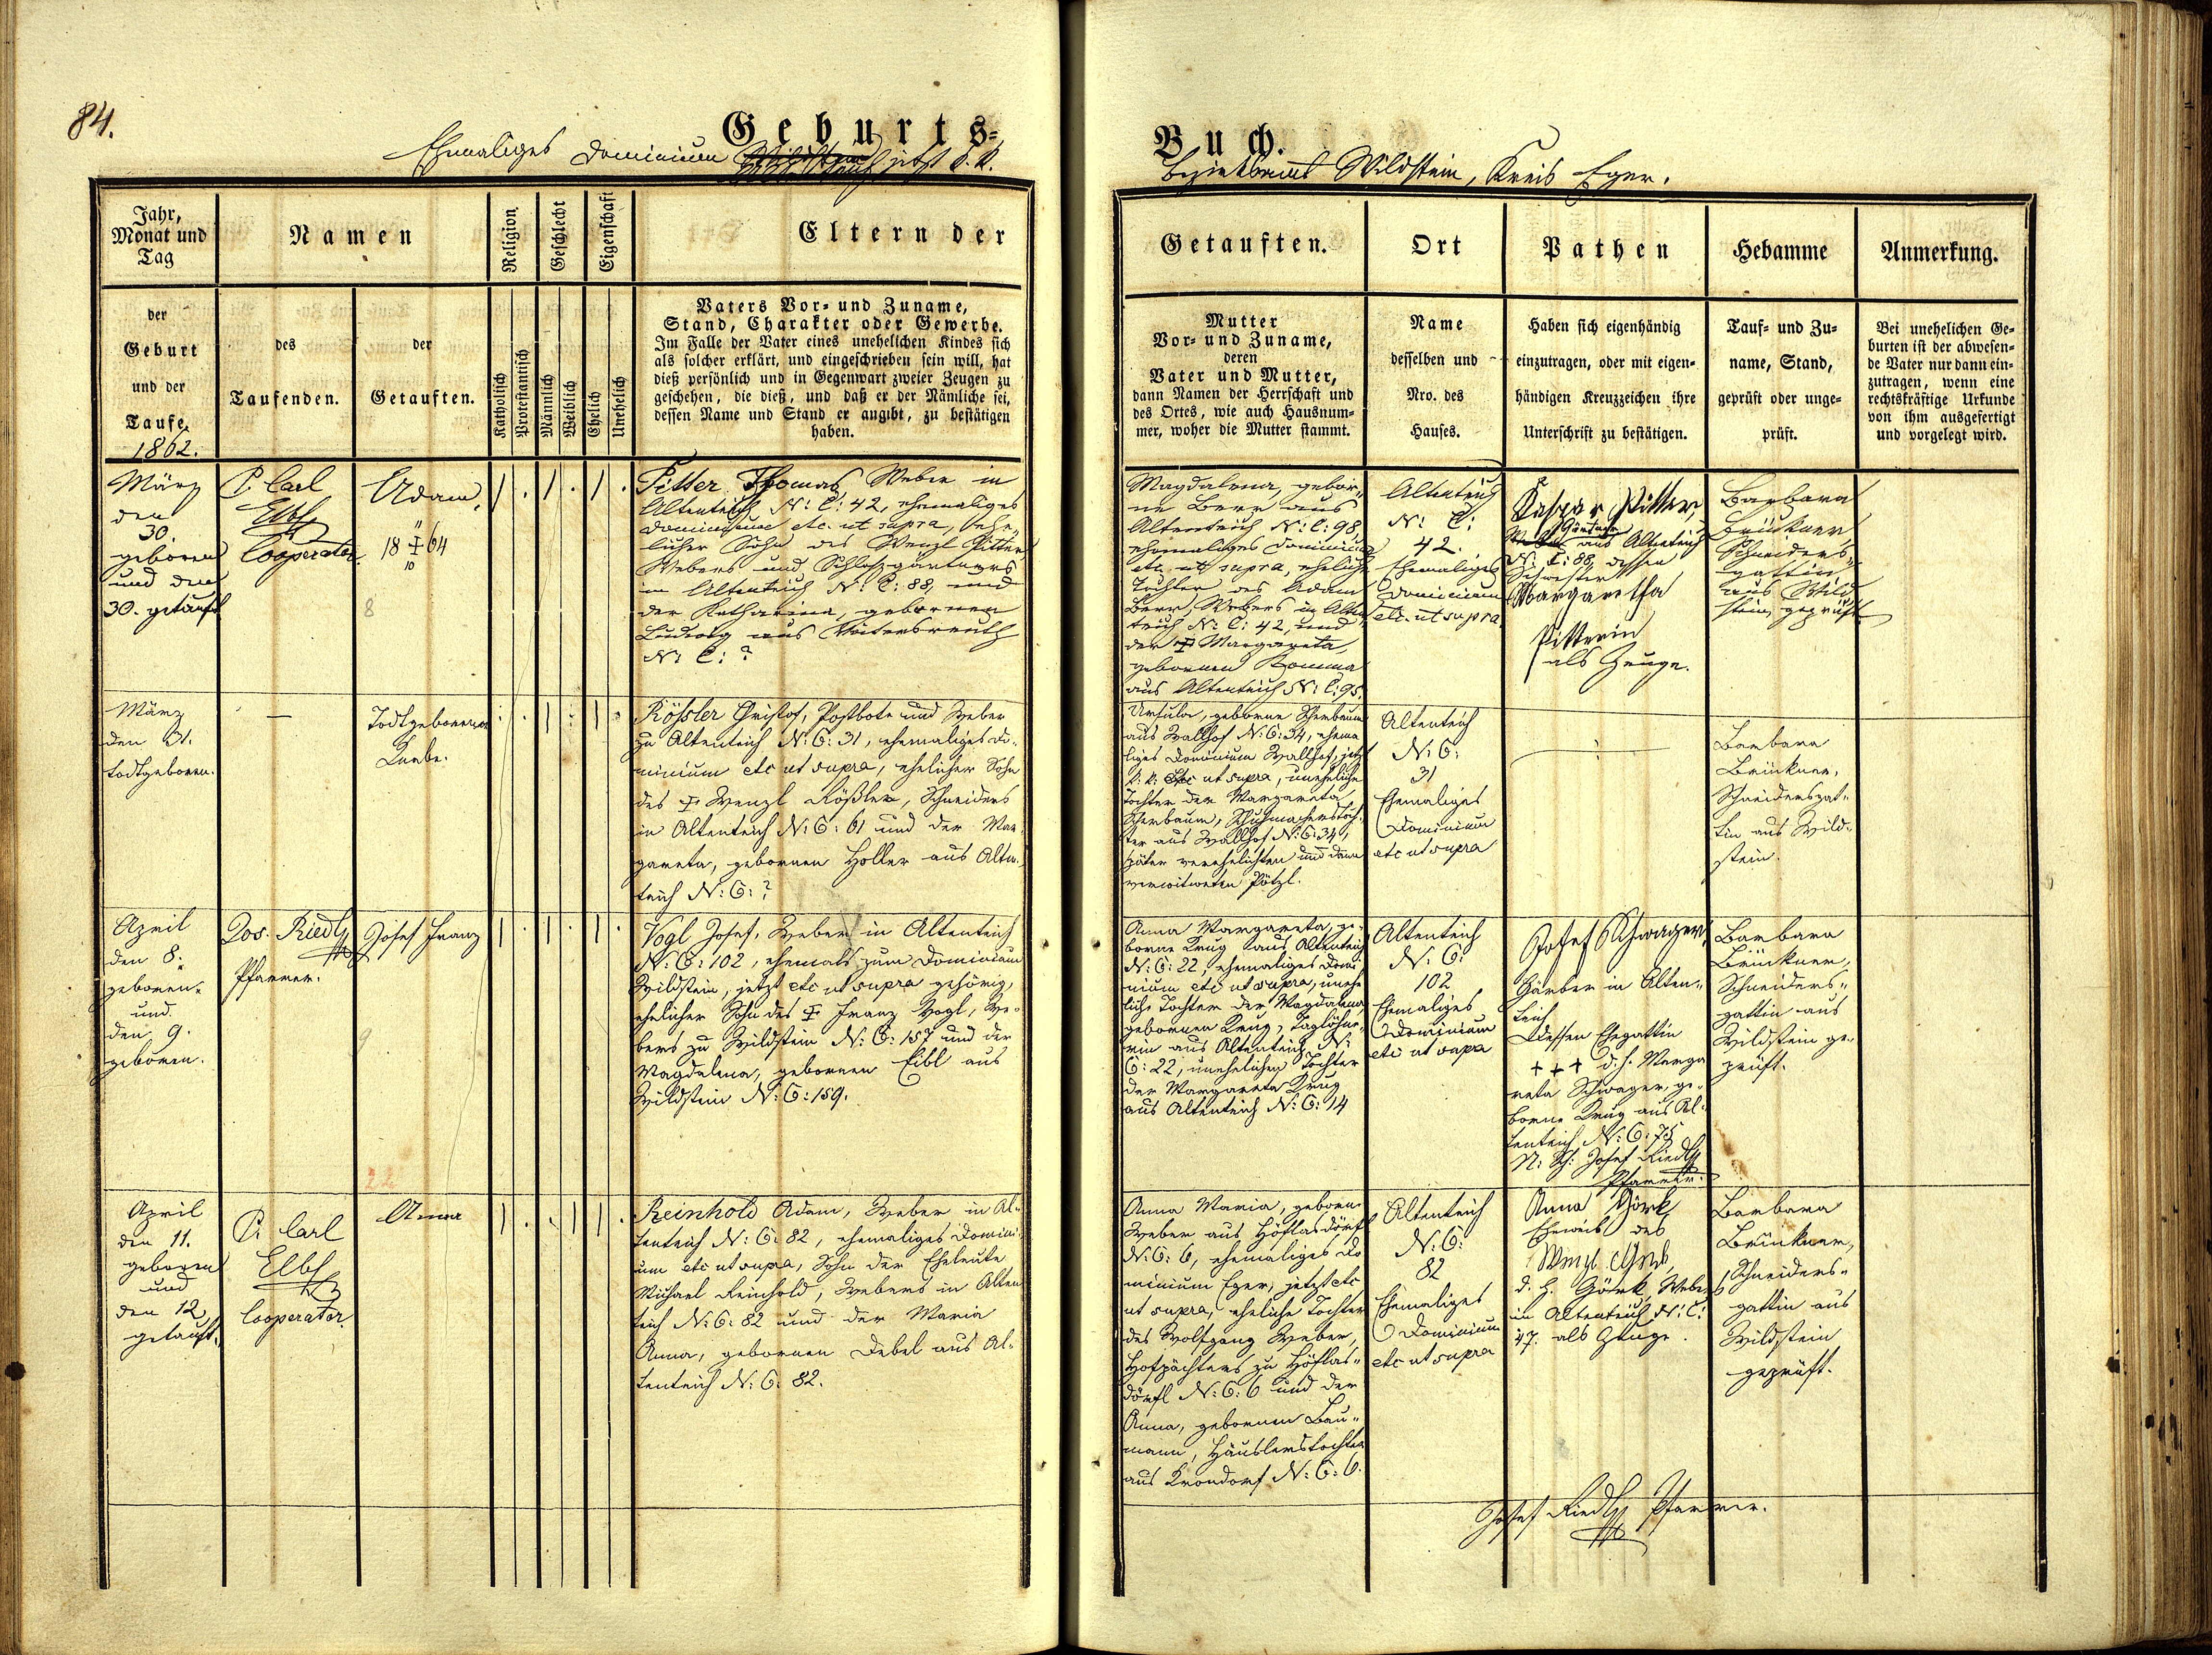 84.
Geburts=
Buch.
Ehmaliges Dominium jetzt k. k.
Bezirksamt Wildstein, Kreis Eger.
Jahr,
Monat und
Tag
Namen
Religion
Geschlecht
Eigenschaft
Eltern der
Getauften.
Ort
Pathen
Hebamme
Anmerkung.
der
Geburt
und der
Taufe.
1862.
des
Taufenden.
der
Getauften.
Katholisch
Protestantisch
Männlich
Weiblich
Ehelich
Unehelich
Vaters Vor= und Zuname,
Stand, Charakter oder Gewerbe.
Im Falle der Vater eines unehelichen Kindes sich
als solcher erklärt, und eingeschrieben sein will, hat
dieß persönlich und in Gegenwart zweier Zeugen zu
geschehen, die dieß, und daß er der Nämliche sei,
dessen Name und Stand er angibt, zu bestätigen
haben.
Mutter
Vor= und Zuname,
deren
Vater und Mutter,
dann Namen der Herrschaft und
des Ortes, wie auch Hausnum=
mer, woher die Mutter stammt.
Name
desselben und
Nro. des
Hauses.
Haben sich eigenhändig
einzutragen, oder mit eigen=
händigen Kreuzzeichen ihre
Unterschrift zu bestätigen.
Tauf= und Zu=
name, Stand,
geprüft oder unge=
prüft.
Bei unehelichen Ge=
burten ist der abwesen=
de Vater nur dann ein=
zutragen, wenn eine
rechtskräftige Urkunde
von ihm ausgefertigt
und vorgelegt wird.
März
den
30.
geboren
und den
30. getauft
P. Carl
Elbl
Cooperator.
Adam,
11
18 ‡ 64
10
8
Pitter Thomas Weber in
Altenteich N: C: 42, ehemaliges
Dominium etc. ut supra, ehe„
licher Sohn des Wenzl Pitter
Webers und Schloßgärtners
in Altenteich N: C: 88, und
der Katharina, gebornen
Ludwig aus Voitersreuth
N: C: ?
Magdalena, gebor„
ne Berr aus
Altenteich N: C: 98,
ehemaliges Dominium
etc. ut supra, eheliche
Tochter des Adam
Berr, Webers in Alten„
teich N: C: 42, und
der ‡ Margareta,
gebornen Komma
aus Altenteich N: C: 95.
Altenteich
N: C:
42.
Ehemaliges
Dominium
etc. ut supra.
Kaspar Pitter,
Gärtner
aus Altenteich
N: C: 88, dessen
Schwester
Margaretha
Pitterin
als Zeuge.
Barbara
Brückner
Schneiders„
gattin
aus Wild
stein, geprüft
März
den 31.
todtgeboren.
—
Todtgeborener
Knabe.
Rößler Christof, Postbote und Weber
zu Altenteich N: C: 31, ehemaliges Do„
minium etc ut supra, ehelicher Sohn
des ‡ Wenzl Rößler, Schneiders
in Altenteich N: C: 61 und der Mar„
gareta, gebornen Holler aus Alten„
teich N: C: ?
Ursula, geborne Scherbaum
aus Wallhof N: C: 34, ehema
liges Dominium Wallhof, jetzt
k: k: etc ut supra, uneheliche
Tochter der Margareta
Scherbaum, Schuhmacherstoch„
ter aus Wallhof N: C: 34,
später verehelichten und dann
verwitweten Pötzl.
Altenteich
N: C:
31
Ehemaliges
Dominium
etc ut supra
Barbara
Brückner,
Schneidersgat„
tin aus Wild„
stein.
April
den 8.
geboren
und
den 9.
geboren.
Jos. Riedl
Pfarrer.
Josef Franz
9
Vogl Josef, Weber in Altenteich
N: C: 102, ehemals zum Dominium
Wildstein, jetzt etc ut supra gehörig,
ehelicher Sohn des ‡ Franz Vogl, We„
bers zu Wildstein N: C: 157 und der
Magdalena, gebornen Eibl aus
Wildstein N: C: 159.
Anna Margareta, ge„
borne Krug aus Altenteich
N: C: 22, ehemaliges Domi„
nium etc ut supra, unehe
liche Tochter der Magdalena,
gebornen Krug, Taglöhne„
rin aus Altenteich N:
C: 22, unehelichen Tochter
der Margareta Krug
aus Altenteich N: C: 14
Altenteich
N: C:
102
Ehemaliges
Dominium
etc ut supra
Josef Schwager,
Gärber in Alten„
teich
Dessen Ehegattin
+++ d. h. Marga
reta Schwager, ge„
borne Krug aus Al„
tenteich N: C: 75
N: Sch: Josef Riedl
Pfarrer.
Barbara
Brückner,
Schneiders„
gattin aus
Wildstein ge„
prüft.
22
April
den 11.
geboren
und
den 12.
getauft.
P. Carl
Elbl
Cooperator.
Anna
Reinhold Adam, Weber in Al„
tenteich N: C: 82, ehemaliges Domini„
um etc ut supra, Sohn der Eheleute
Michael Reinhold, Webers in Alten
teich N: C: 82 und der Maria
Anna, gebornen Debel aus Al„
tenteich N: C: 82.
Anna Maria, geborne
Weber aus Höflasdörfl
N: C: 6, ehemaliges Do
minium Eger, jetzt etc
ut supra, eheliche Tochter
des Wolfgang Weber,
Hofpächters zu Höflas„
dörfl N: C: 6 und der
Anna, gebornen Bau„
mann, Häuslerstochter
aus Krondorf N: C: 6.
Altenteich
N: C:
82
Ehemaliges
Dominium
etc ut supra
Anna Görk
Eheweib des
Wenzl
d. h. Görk, Weber
in Altenteich N: C:
47. als Zeuge.
Barbara
Brückner,
Schneiders„
gattin aus
Wildstein
geprüft.
Josef Riedl Pfarrer.